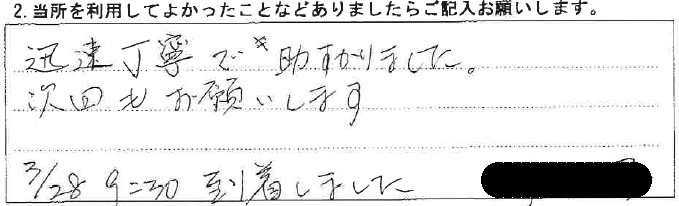 2.当所を利用してよかったことなどありましたらご記入お願いします。
迅速丁寧で助すかりました。
次回もお願いします
3/28 9:30 到着しました